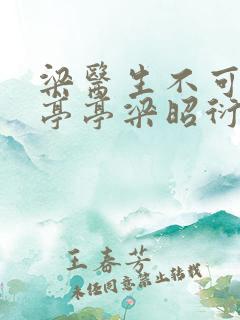 梁醫生不可
亭亭梁昭衍
王春芳
未经同意禁止转载